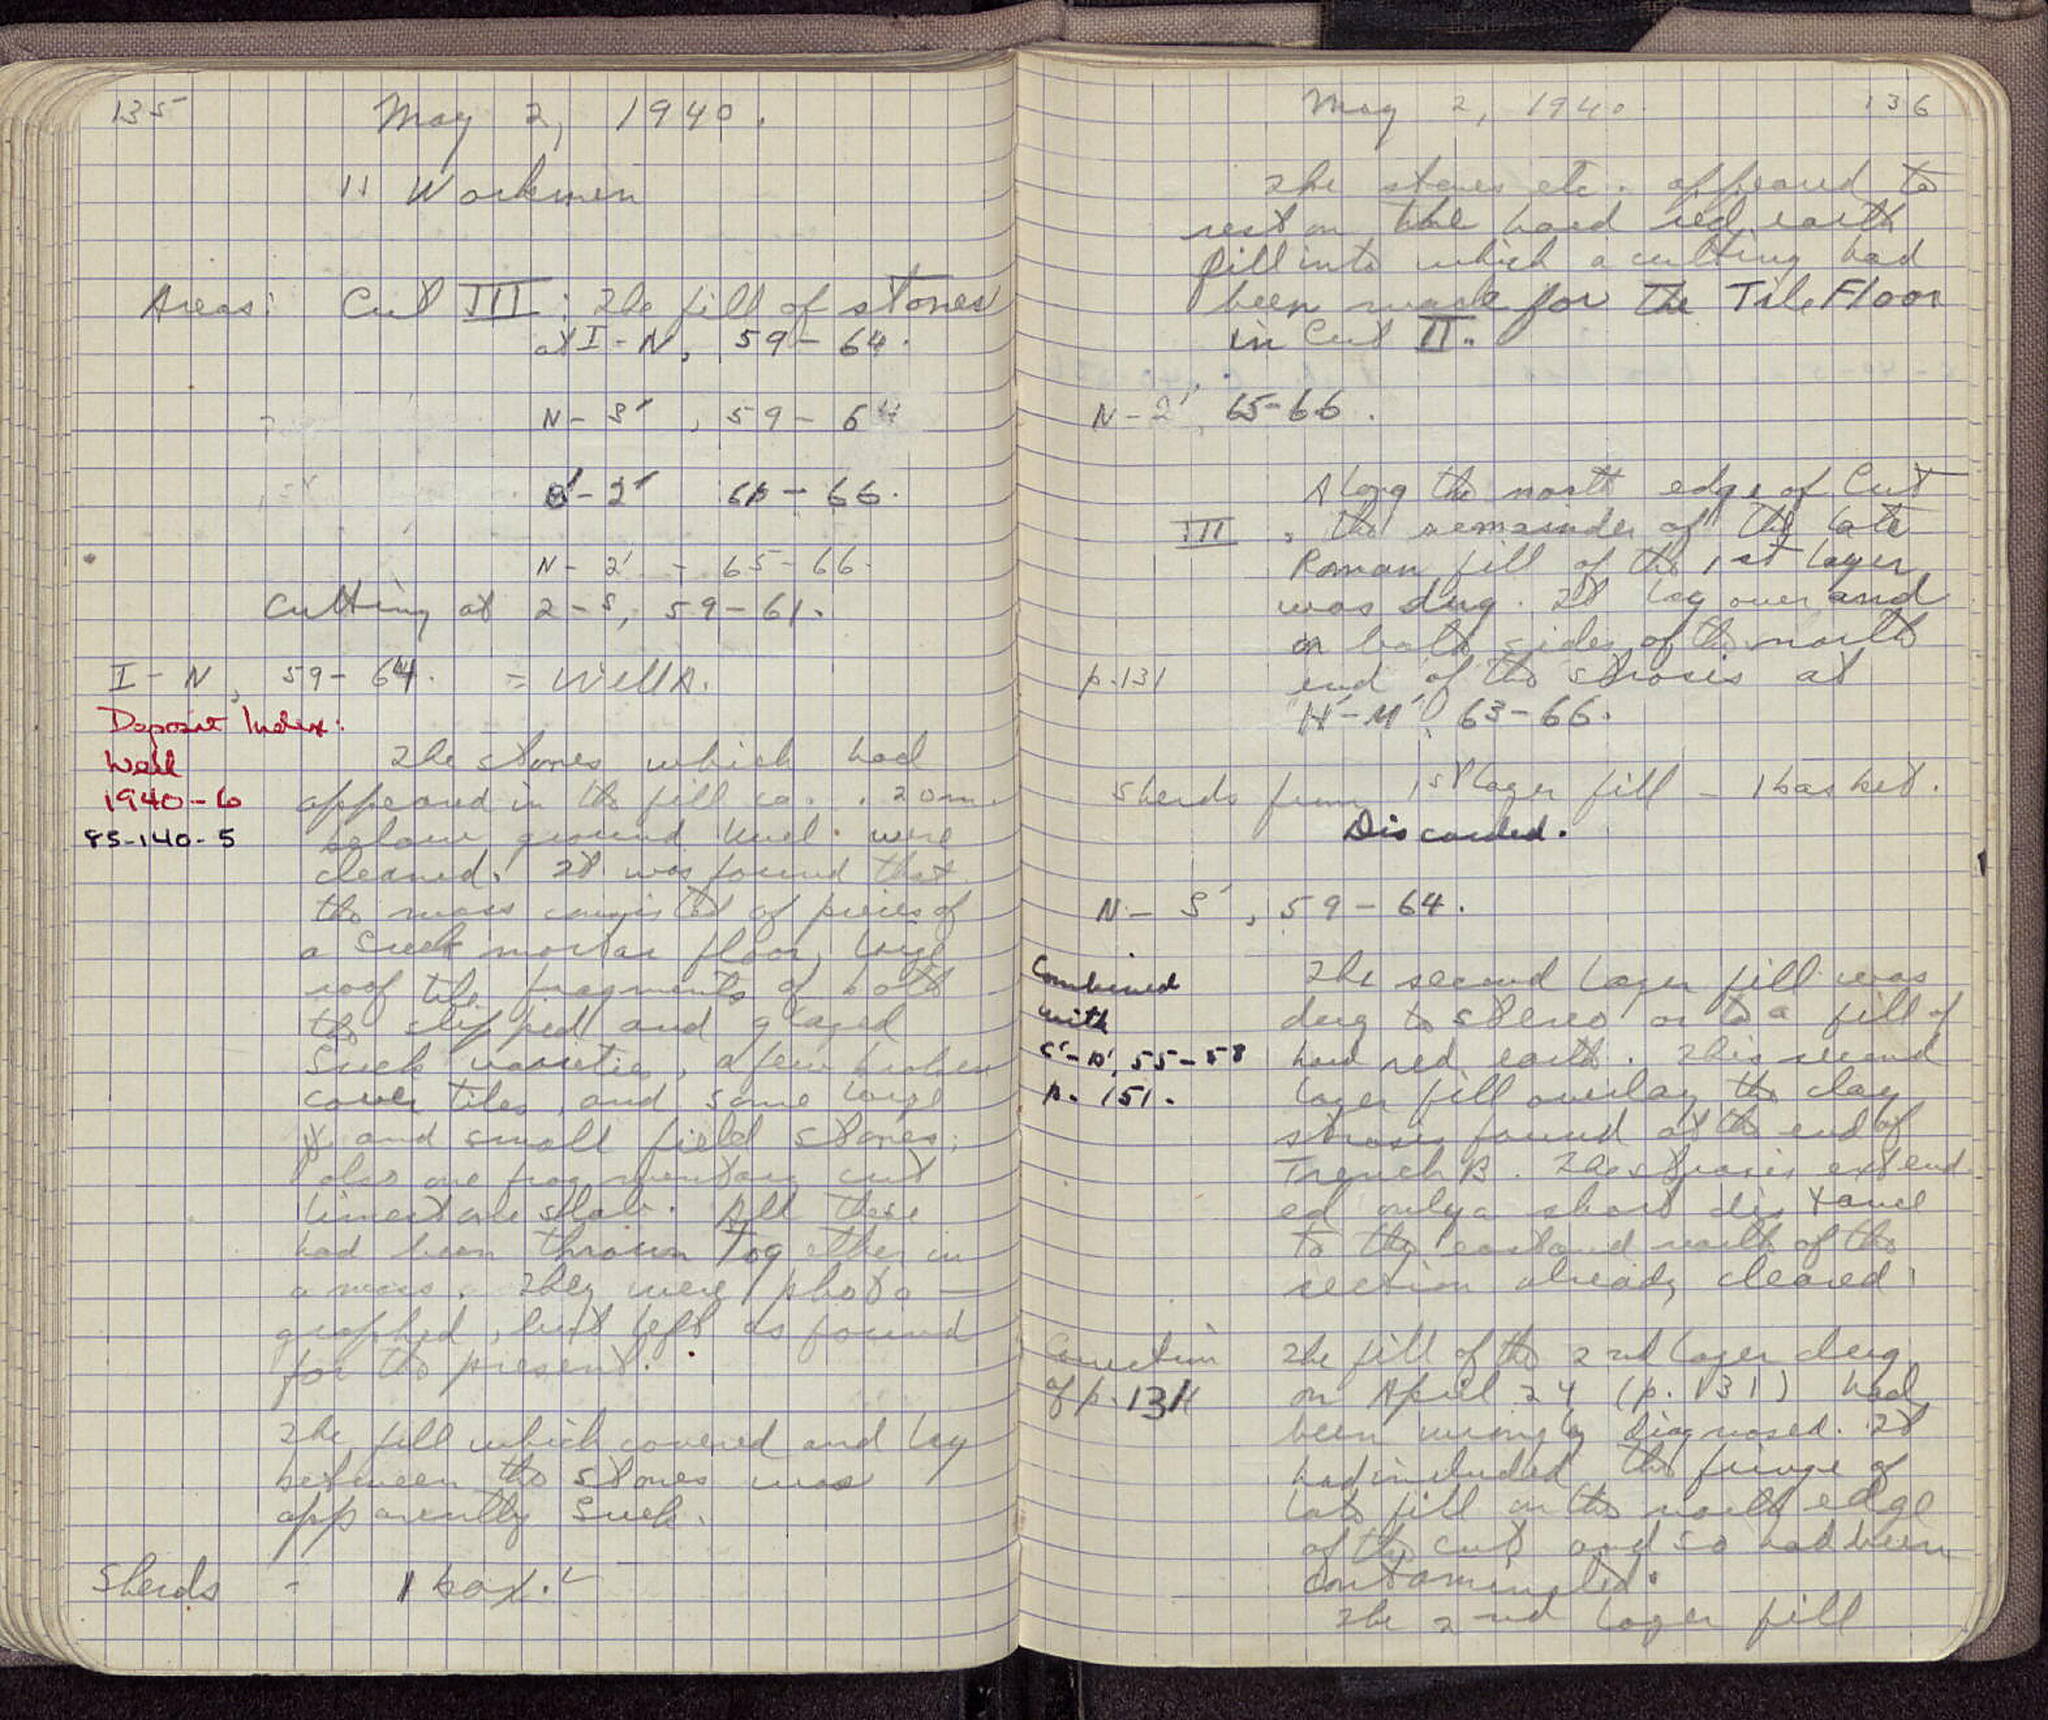 135
May 2, 1940.
11 Workmen
Areas: Cut III: The fill of stones
at I-N, 59-64.
N-S', 59-64
S'-2' 61-66.
N-2' - 65-66.
Cutting at 2-S, 59-61.
I-N, 59-64. = Well A.
Deposit Index:
Well
1940-6
85-140-5
The stones which had
appeared in the fill ca. .20m.
below ground level were
cleaned. It was found that
the mass consisted of pieces of
a Greek mortar floor, large
roof tile fragments of both
the slipped and glazed
Greek varieties, a few broken
cover tiles, and some large
and small field stones;
also one fragmentary cut
limestone slab. All these
had been thrown together in
a mass. They were photo-
graphed, but left as found
for the present.
The fill which covered and lay
between the stones was
apparently Greek.
Sherds - 1 box.
May 2, 1940.
136
The stones etc. appeared to
rest on the hard red earth
fill into which a cutting had
been made for the Tile Floor
in Cut II.
N-2', 65-66.
Along the north edge of Cut
III, the remainder of the late
Roman fill of the 1st layer
was dug. It lay over and
on both sides of the north
p.131
end of the strosis at
H'-M', 63-66.
Sherds from 1st layer fill - 1 basket.
Discarded.
N-S', 59-64.
Combined
with
C'-D', 55-58
p. 151.
The second layer fill was
dug to stereo or to a fill of
hard red earth. This second
layer fill overlay the clay
strosis found at the end of
Trench B. The strosis extend
ed only a short distance
to the east and north of the
section already cleared.
Correction
of p. 131
The fill of the 2nd layer dug
on April 24 (p. 131) had
been wrongly diagnosed. It
had included the fringe of
late fill on the north edge
of the cut and so had been
contaminated.
The 2nd layer fill